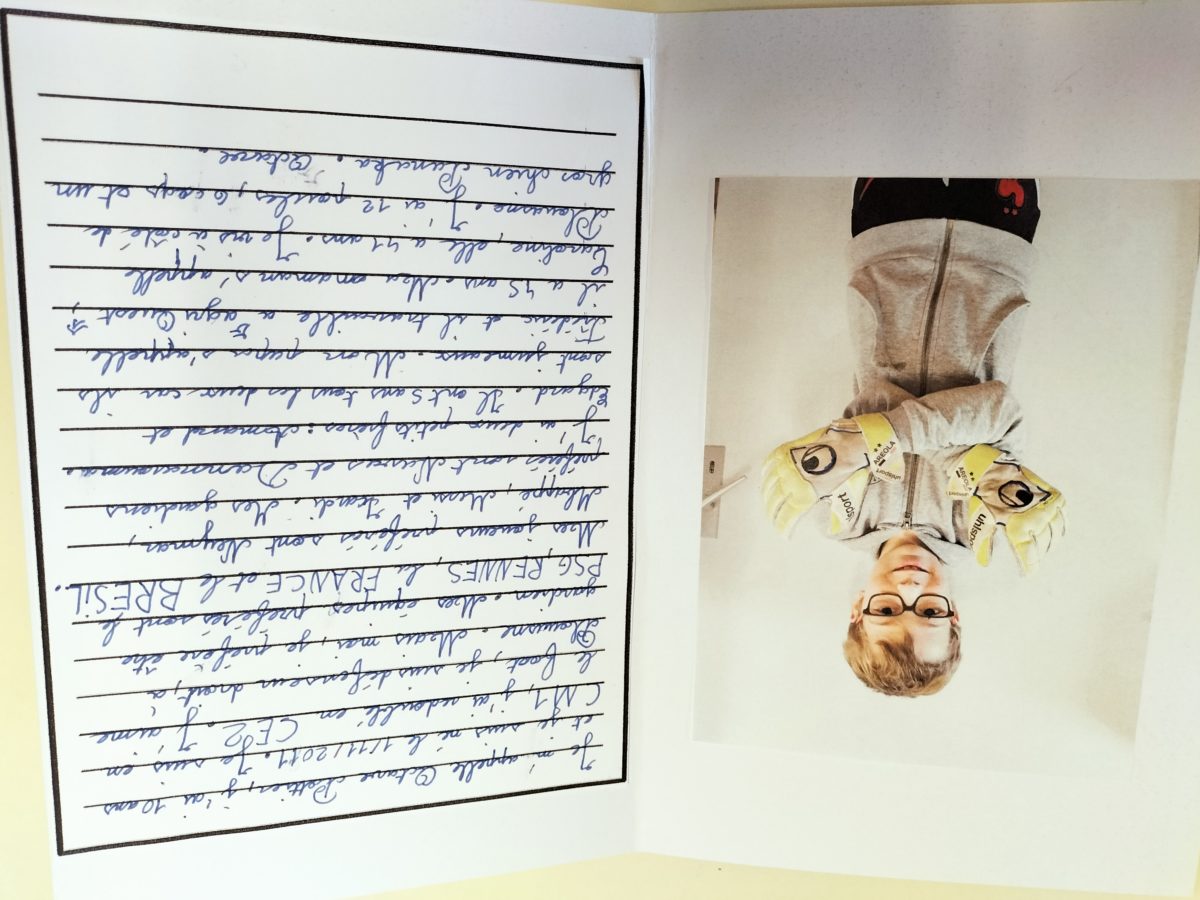 Je m'appelle Octave Pottier, j'ai 10 ans
et je suis né le 1/11/2011. Je suis en
CM1, j'ai redoublé en CE2. J'aime
le foot, je suis défenseur droit, à
Plouasne. Mais moi, je préfère être
gardien. Mes équipes préférés sont le
PSG, RENNES, la FRANCE et le BRESiL.
Mes joueurs préférés sont Neymar,
Mbappé, Messi et . Mes gardiens
préférés sont Navas et Donnarumma.
J'ai deux petits frères : Armand et
Edgard. Il ont 5 ans tous les deux car ils
sont jumeaux. Mon papa s'appelle
Frédéric et il travaille a agri Ouest,
il a 45 ans. Ma maman s'appelle
Caroline, elle a 41 ans. Je vis à côté de
Plouasne. J'ai 12 poules, 6 coqs et un
gros chien Danuka. Octave.
uhlsport
AREOLA
uhlsport
uhlsport
AREOLA
uhlsport